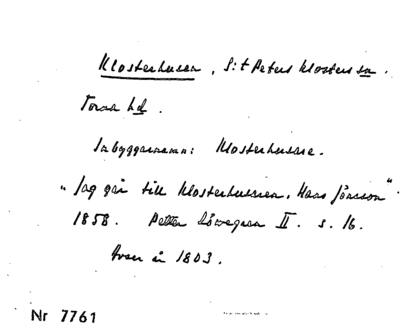 Klosterhusen, S:t Peters Klosters sn.
Torna hd.
Inbyggarnamn: Klosterhusare.
"Jag går till Klosterhusien. Hans Jönsson"
1858. Petter II. s. 16.
Avser år 1803.
Nr 7761